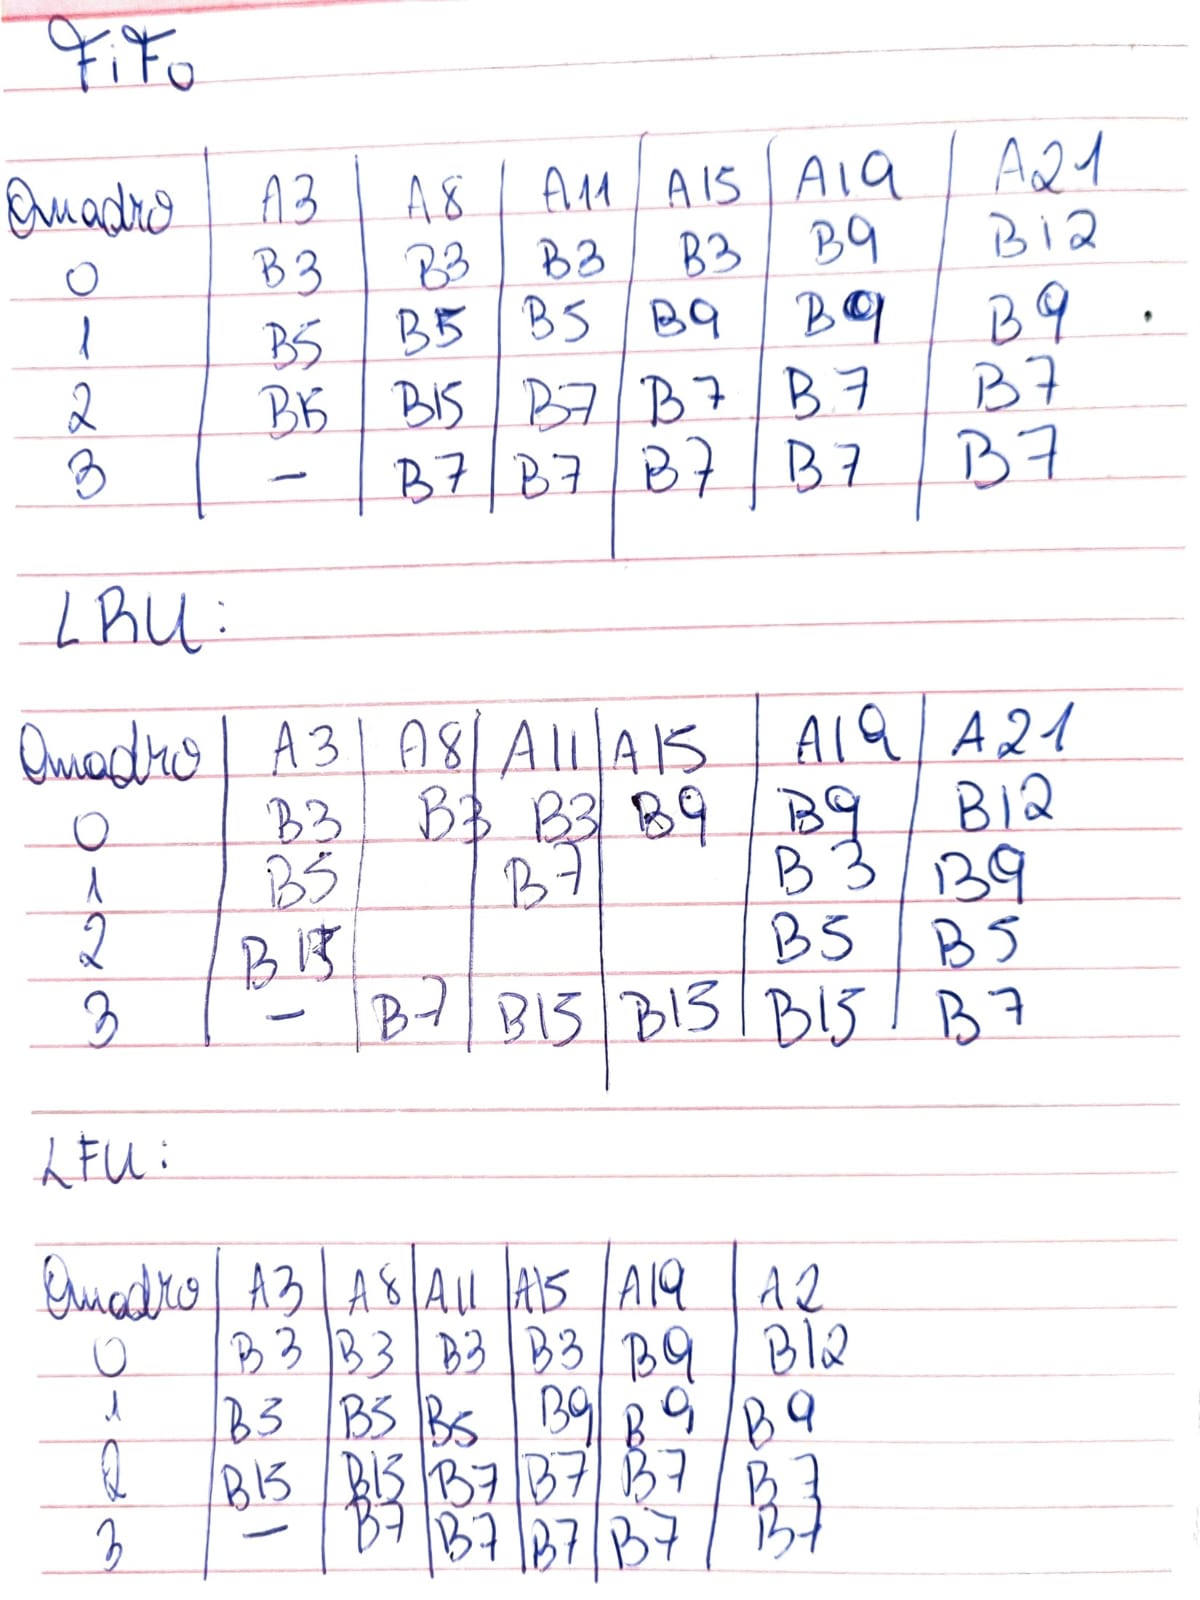 FiFo
Quadro A3 A8 A11 A15 A19 A21
0 B3 B3 B3 B3 B9 B12
1 B5 B5 B5 B9 B9 B9
2 B15 B15 B7 B7 B7 B7
3 - B7 B7 B7 B7 B7
LRU:
Quadro A3 A8 A11 A15 A19 A21
0 B3 B3 B3 B9 B9 B12
1 B5 B7 B3 B9
2 B15 B5 B5
3 - B7 B15 B15 B15 B7
LFU:
Quadro A3 A8 A11 A15 A19 A2
0 B3 B3 B3 B3 B9 B12
1 B5 B5 B5 B9 B9 B9
2 B15 B15 B7 B7 B7 B7
3 - B7 B7 B7 B7 B7